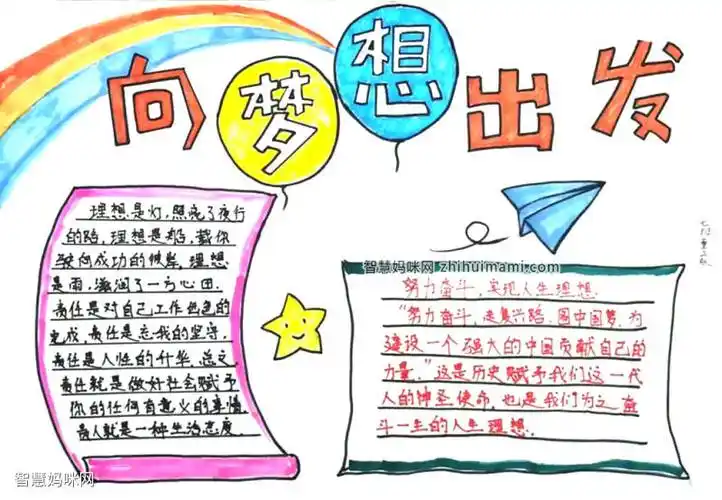 向梦想出发
理想是灯,照亮了夜行
的路,理想是船,载你
驶向成功的彼岸,理想
是雨,滋润了一方心田.
责任是对自己工作出色的
完成,责任是忘我的坚守,
责任是人性的升华,总之,
责任就是做好社会赋予
你的任何有意义的事情.
责人就是一种生活态度.
智慧妈咪网 zhihuimami.com
努力奋斗,实现人生理想.
“努力奋斗,走复兴路,圆中国梦,为
建设一个强大的中国贡献自己的
力量.”这是历史赋予我们这一代
人的神圣使命,也是我们为之奋
斗一生的人生理想.
智慧妈咪网